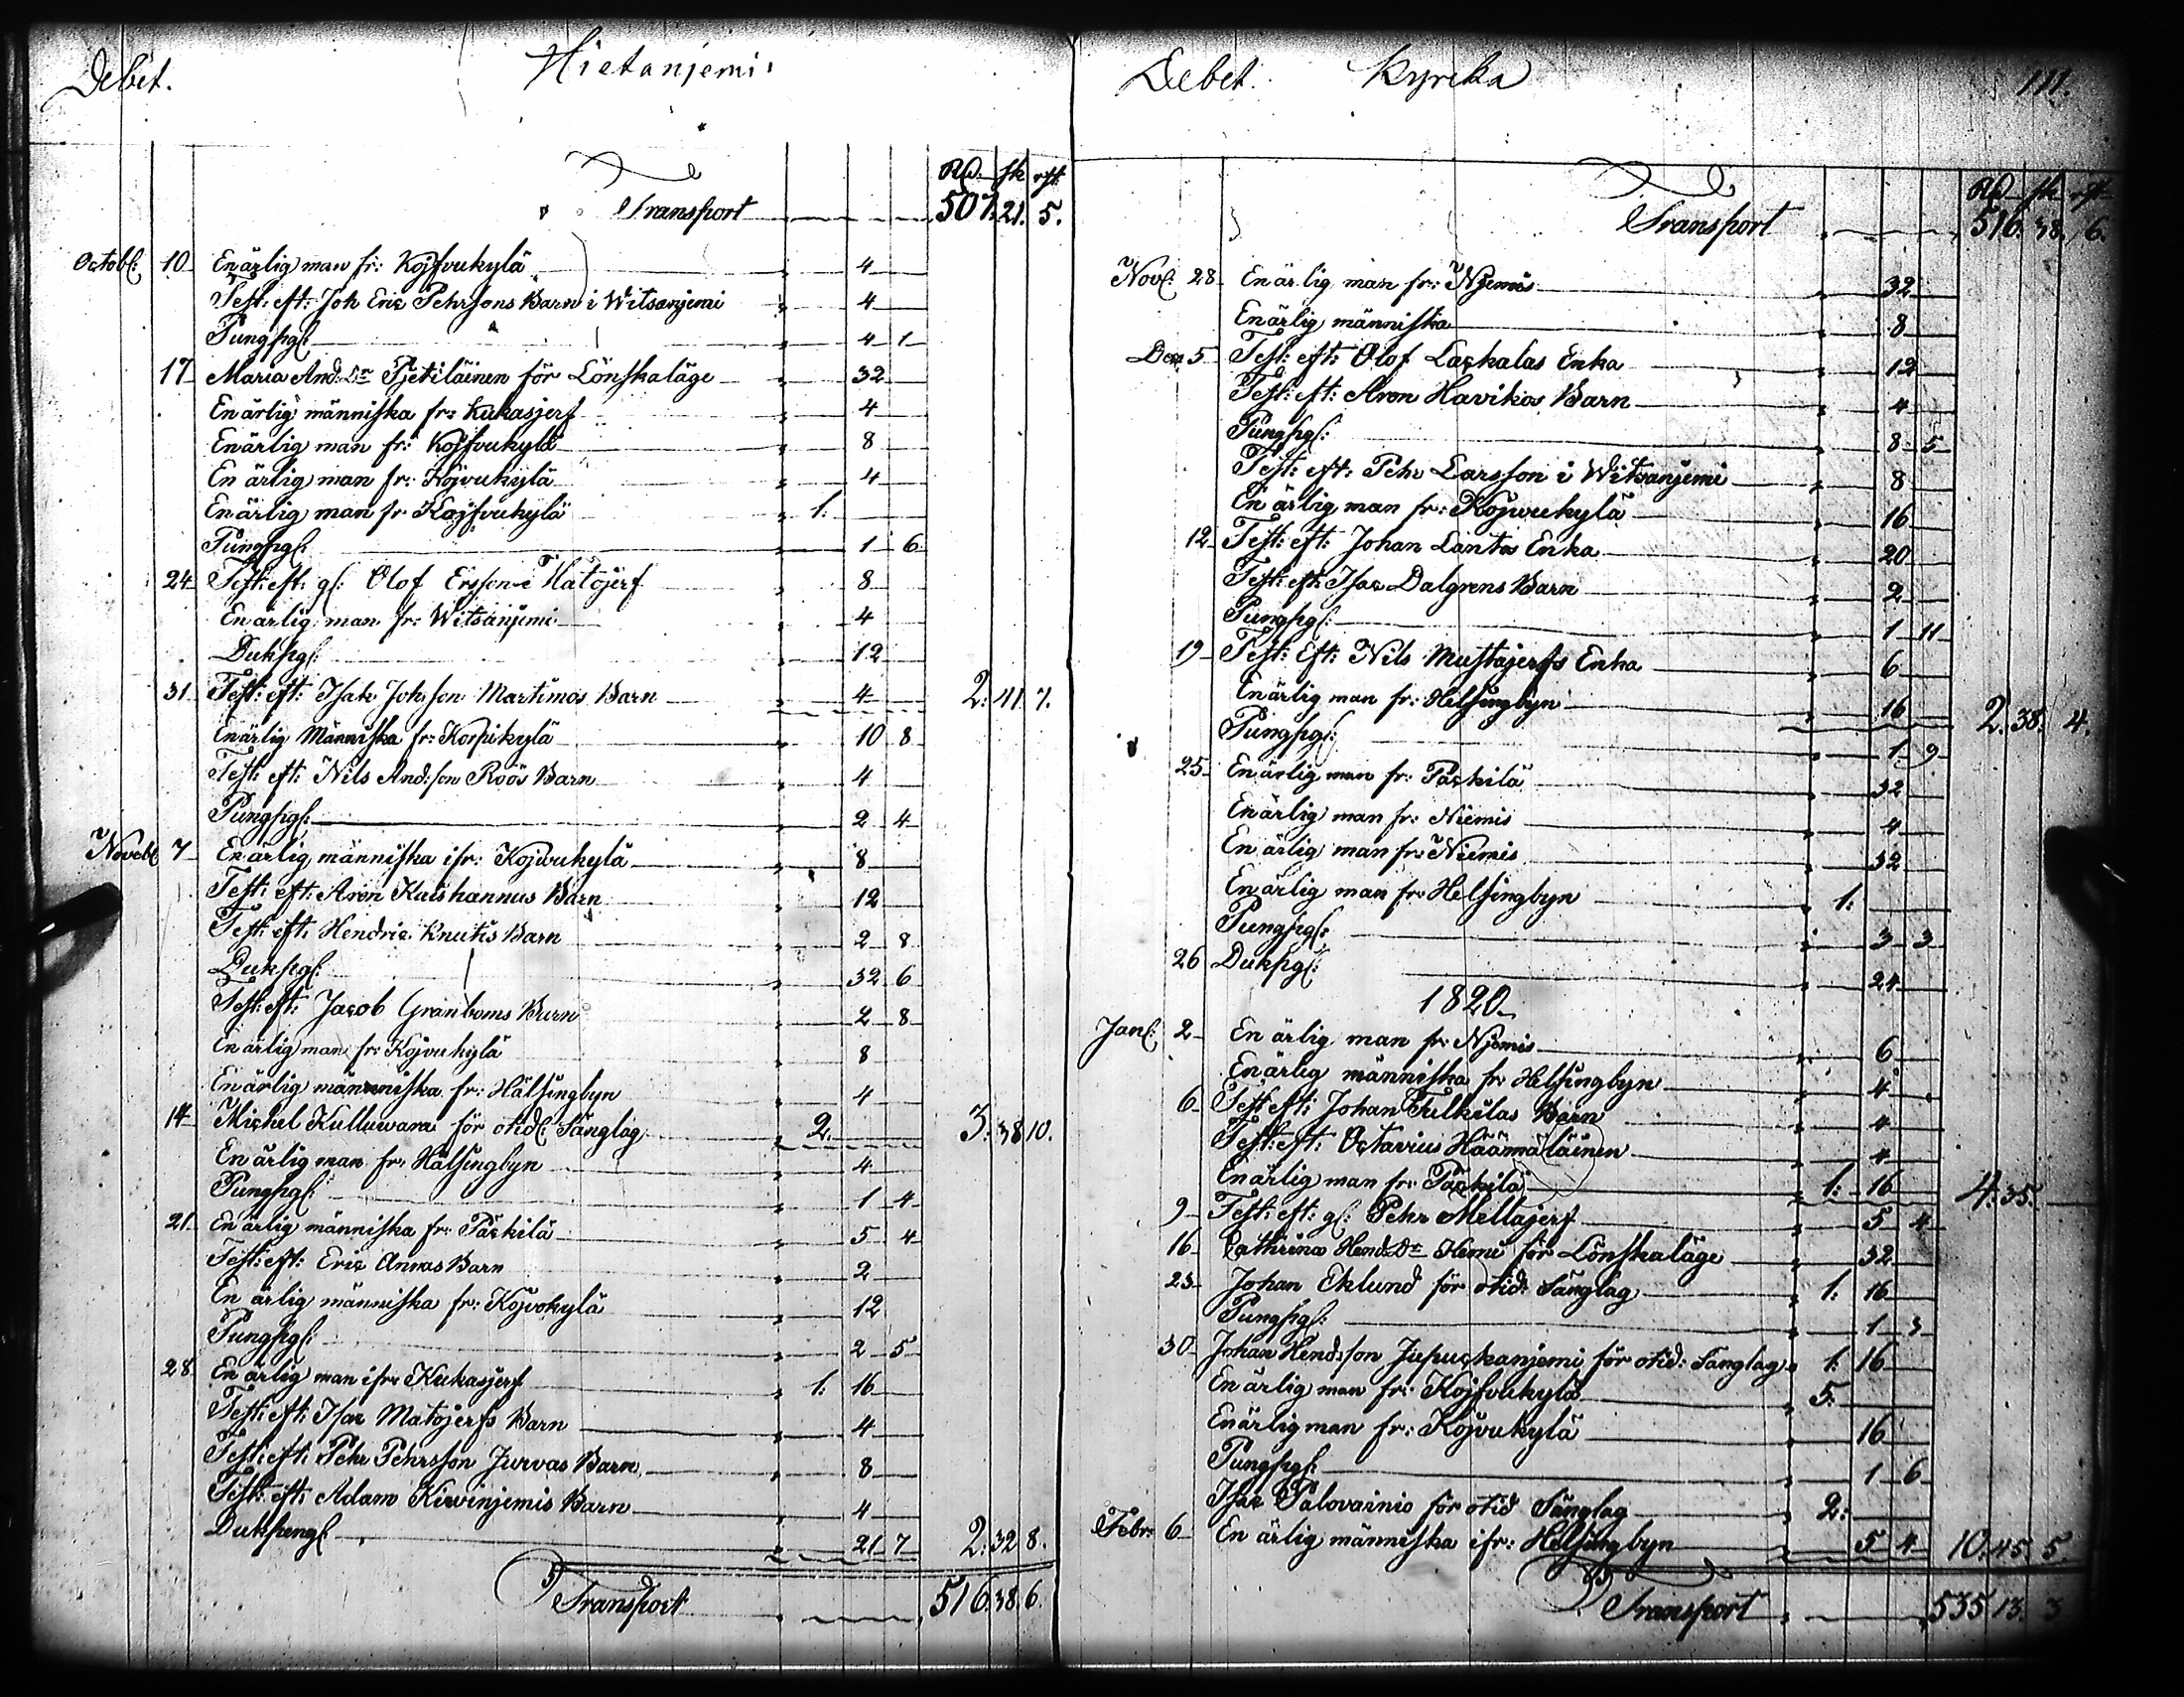 Debet. Hietanjemi
Rd. sk rst
Transport 507. 21. 5.
Octobl: 10 En ärlig man fr: Kojfvukylä 4
Test: eft: Joh Eric Pehrsons Barn i Witsanjemi 4
Pungpgl: 4 1
17 Maria And: Dr Pjetiläinen för Lönskaläge 32
En ärlig människa fr: Kukasjerf 4
En ärlig man fr: Kojfvukylä 8
En ärlig man fr: Kojvukylä 4
En ärlig man fr Kojfvukylä 1:
Pungpgl: 1 6
24 Test: eft: gl: Olof Ersson i Matojerf 8
En ärlig man fr: Witsanjemi 4
Dukpgl: 12
31 Test: eft: Isak Johsson Martimos Barn 4 2: 41 7.
En ärlig Människa fr: Korpikylä 10 8
Test: eft: Nils And:son Roös Barn 4
Pungpgl: 2 4
Novebl 7 En ärlig människa ifr: Kojvukylä 8
Test: eft: Aron Kaishannus Barn 12
Test: eft: Hendric Knutis Barn 2 8
Dukpgl: 32 6
Test: eft: Jacob Granboms Barn 2 8
En ärlig man fr: Kojvukylä 8
En ärlig människa fr: Hälsingbyn 4
14 Michel Kulluwara för otidl: Sänglag 2. 3: 38 10.
En ärlig man fr: Hälsingbyn 4
Pungpgl: 1 4
21 En ärlig människa fr: Päckilä 5 4
Test: eft: Eric Annas Barn 2
En ärlig människa fr: Kojvokylä 12
Pungpgl: 2 5
28 En ärlig man ifr: Kukasjerf 1: 16
Test: eft: Isac Matojerfs Barn 4
Test: eft: Pehr Pehrsson Jurvas Barn 8
Test: eft: Adam Kiwinjemis Barn 4
Dukpengl 21 7 2: 32 8.
Transport 516. 38. 6.
Debet. Kyrcka 111.
Rd sk rst
Transport 516. 38. 6.
Novl: 28 En ärlig man fr: Njemis 32
En ärlig människa 8
Dec 5 Test: eft: Olof Lackalas Enka 12
Test: eft: Aron Havikos Barn 4
Pungpgl: 8 5
Test: eft: Pehr Larsson i Witsanjemi 8
En ärlig man fr: Kojvukylä 16
12 Test: eft: Johan Lantos Enka 20
Test: eft: Isac Dalgrens Barn 2
Pungpgl: 1 11
19 Test: Eft: Nils Mustajerfs Enka 6
En ärlig man fr: Helsingbyn 16 2. 38. 4.
Pungpgl: 1 9
25 En ärlig man fr: Päckilä 32
En ärlig man fr: Niemis 4
En ärlig man fr: Niemis 32
En ärlig man fr: Helsingbyn 1:
Pungpgl: 3 3
26 Dukpgl: 24
1820
Janl: 2 En ärlig man fr: Njemis 6
En ärlig människa fr Helsingbyn 4
6 Test eft: Johan Fulkilas Barn 4
Test: eft: Octavius Häämäläinen 4
En ärlig man fr: Päckilä 1: 16 4: 35.
9 Test: eft: gl: Pehr Mellajerf 5 4
16 Cathrina Hend: Dr Hemi för Lönskaläge 32
23 Johan Eklund för otid: Sänglag 1: 16
Pungpgl: 1 3
30 Johan Hend:son Jupuckanjemi för otid: Sänglag 1: 16
En ärlig man fr: Kojfvukylä 5:
En ärlig man fr: Kojvukylä 16
Pungpgl: 1 6
Isac Palovainio för otid Sänglag 2:
Febr: 6 En ärlig människa ifr: Helsingbyn 5 4 10: 45 5.
Transport 535 13. 3